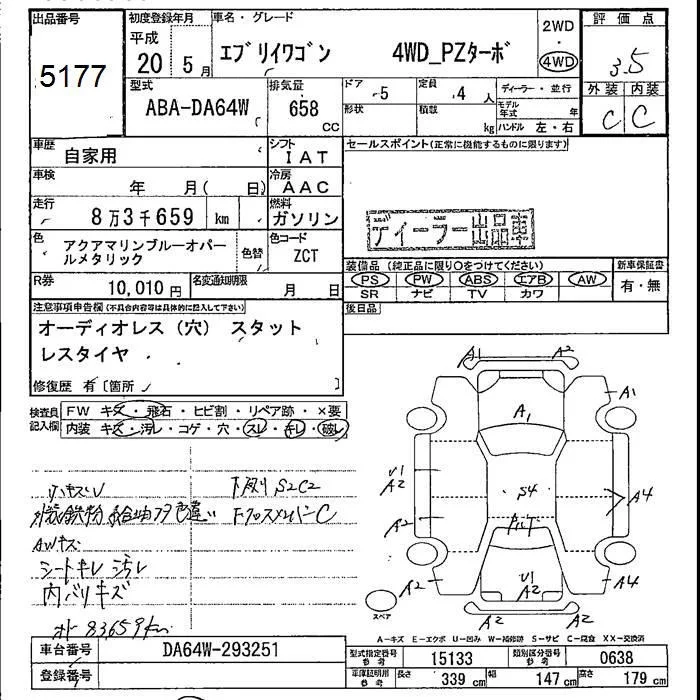 出品番号 初度登録年月 車名・グレード 2WD 評価点
5177 平成 20 5月 エブリイワゴン 4WD_PZターボ 4WD 3.5
型式 排気量 ドア 5 定員 4人 ディーラー・並行 外装 内装
ABA-DA64W 658 cc 形状 積載 kg モデル年式 年 C C
ハンドル 左・右
車歴 自家用 シフト IAT セールスポイント(正常に機能するものに限ります)
車検 年 月( 日) 冷房 AAC
走行 8万3千659 km 燃料 ガソリン
ディーラー出品車
色 アクアマリンブルーオパールメタリック 色替 色コード ZCT
装備品(純正品に限り○をつけてください) 新車保証書
R券 10,010円 名変通知期限 月 日
PS PW ABS エアB AW 有・無
SR ナビ TV カワ
注意事項申告欄(不具合内容等は具体的に記入して下さい) 後日品
オーディオレス(穴) スタット
レスタイヤ
修復歴 有〔箇所 〕
検査員記入欄 FW キズ・飛石・ヒビ割・リペア跡・×要
内装 キズ・汚レ・コゲ・穴・スレ・キレ・破レ
A1 A2
A1
A1
U1
A2
S4
A4
A2
A2 U1 A2 A4
スペア
A2 A2
小キズU 下廻り S2C2
外装鉄粉 給油フタ色違い 下クロスメンバーC
AWキズ
シートキレ 汚レ
内バリキズ
オド 83659km
A-キズ E-エクボ U-凹み W-補修跡 S-サビ C-腐食 XX-交換済
車台番号 DA64W-293251 型式指定番号 参考 15133 類別区分番号 参考 0638
登録番号 車庫証明用 参考 長さ 339cm 幅 147cm 高さ 179cm